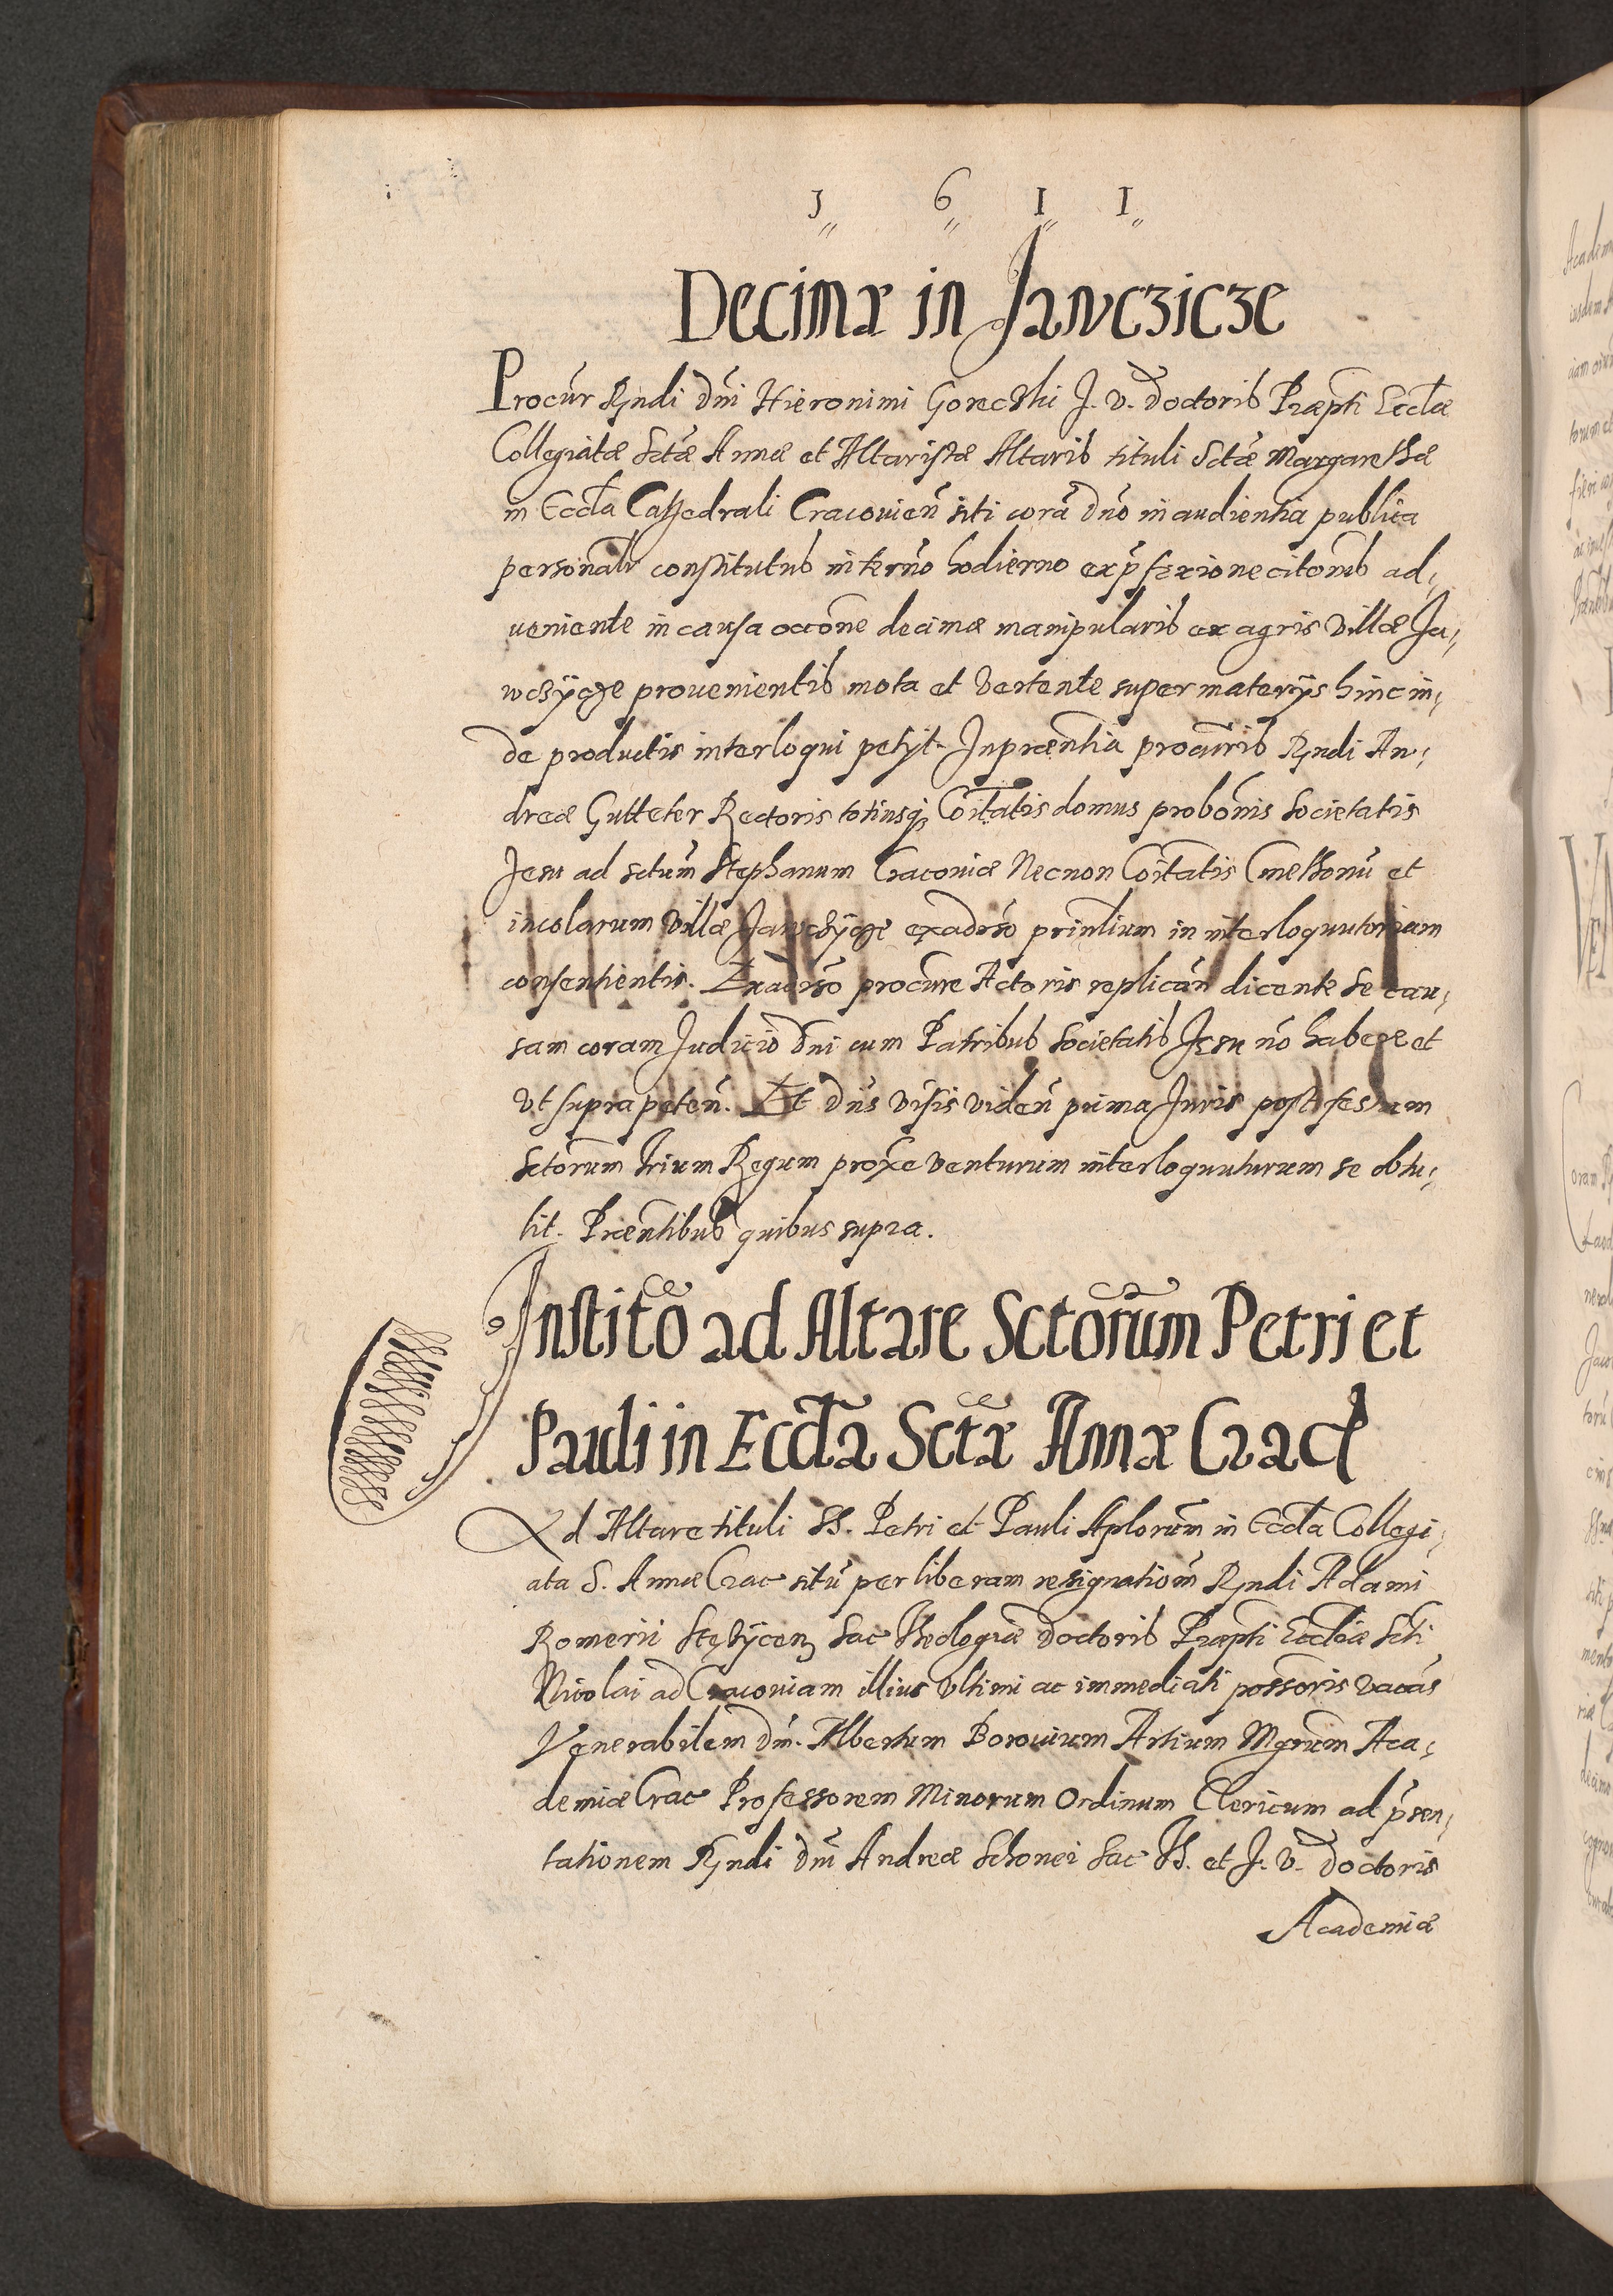 3 6 1 1
Decimæ in Jawczicze
Procur̃ Rṇdi dñi Hieronimi Goreczki J. V. Doctoris Præpti Eccl̃æ
Collegiatæ Sctæ Annæ et Altaristæ Altaris tituli Sctæ Margarethæ
in Eccl̃a Cathedrali Cracouień siti corã dño in audientia publica
personalr̃ constitutus in termo hodierno ex p̃fixione citoñis ad„
ueniente in causa occoñe decimæ manipularis ex agris villæ Ja„
wczÿcze prouenientis mota et vertente super materijs hinc in„
de productis interloqui petijt. In præntia procuris Rṇdi An„
dreæ Gutteter Rectoris totiusq; Coitatis domus proboñis Societatis
Jesu ad sctum Stephanum Cracouiæ Necnon Coitatis Cmethonũ et
incolarum villæ Jawczÿcze ex aduerso prinlium in interloquutoriam
consentientis. Ex aduerso procure Actoris replicań dicente se cau„
sam coram Judicio Dñi cum Patribus Societatis Jesu nõ habere et
vt supra peteñ. Et Dñs visis videñ prima Juris post festum
Sctorum trium Regum proxe venturum interloquuturum se obtu„
lit. Præntibus quibus supra.
Institõ ad Altare Sctorum Petri et
Pauli in Eccl̃a Sctæ Annæ Crac
Ad Altare tituli SS. Petri et Pauli Aplorum in Eccl̃a Collegi„
ata S. Annæ Crac situ per liberam resignatioñ Rṇdi Adami
Romerii Stężÿcen Sac Theologiæ Doctoris Præpti Eccl̃iæ Scti
Nicolai ad Cracouiam illius vltimi ac immediati possoris vacañs
Venerabilem dñ. Albertum Borouium Artium Mgrum Aca„
demiæ Crac Professorem Minorum Ordinum Clericum ad p̃sen„
tationem Rṇdi dñi Andreæ Schonei Sac Th. et J. V. Doctoris
Academiæ